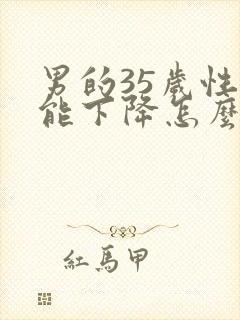 男的35歲性
能下降怎麼
紅馬甲